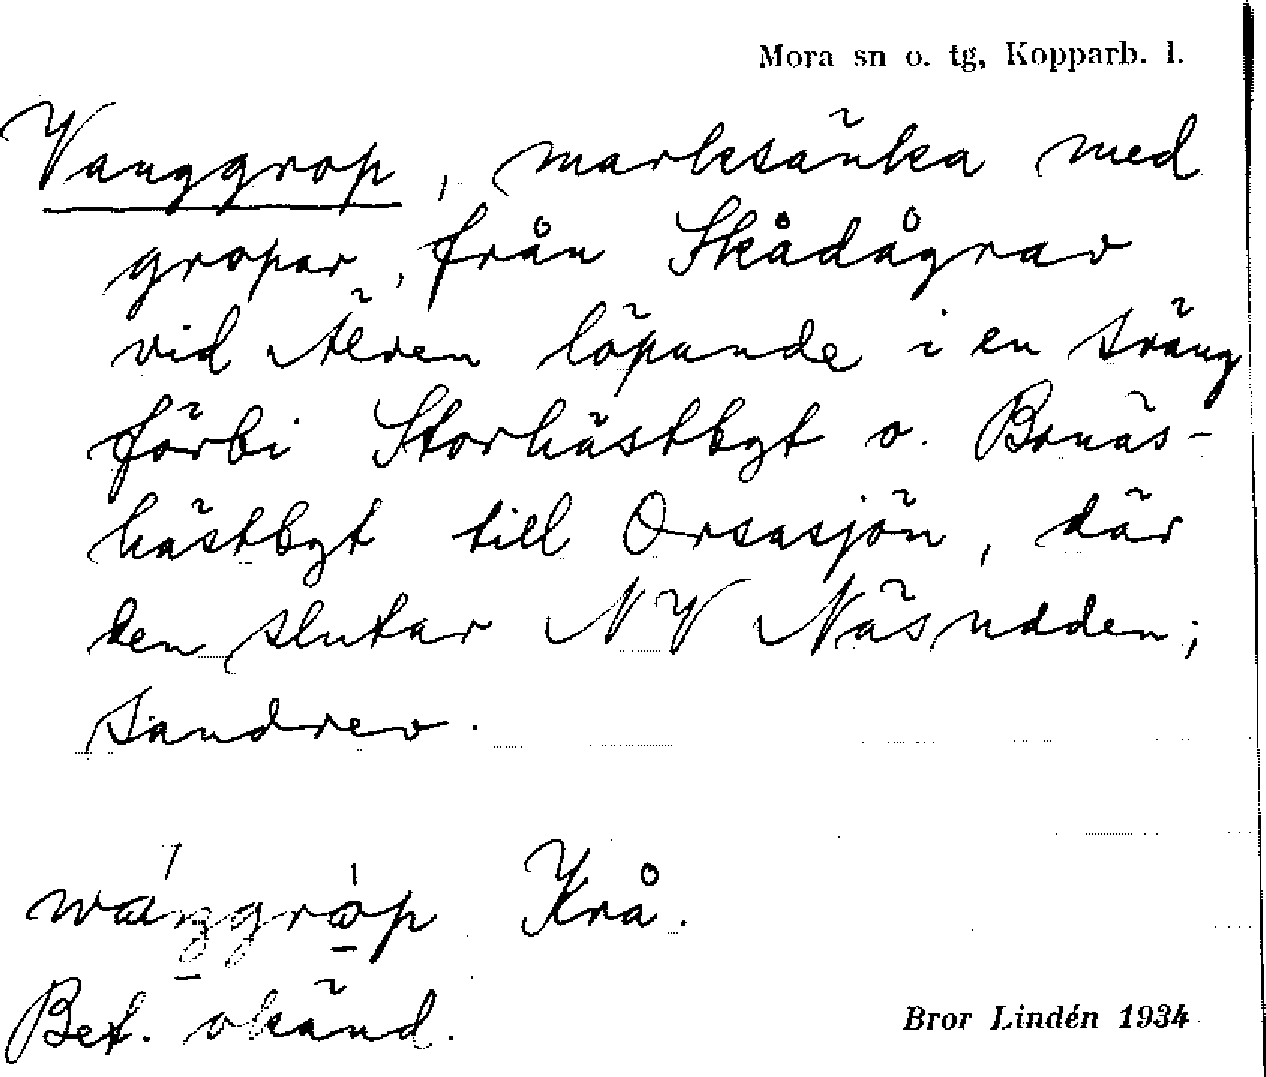 Mora sn o. tg, Kopparb. l.
Vanggrop, marksänka med
gropar, från Skådågrav
vid Älven löpande i en sträng
förbi Storhästbgt o. Bonäs-
hästbgt till Orsasjön, där
den slutar NV Näsudden;
sandrev.
Krå.
Bet. okänd.
Bror Lindén 1934